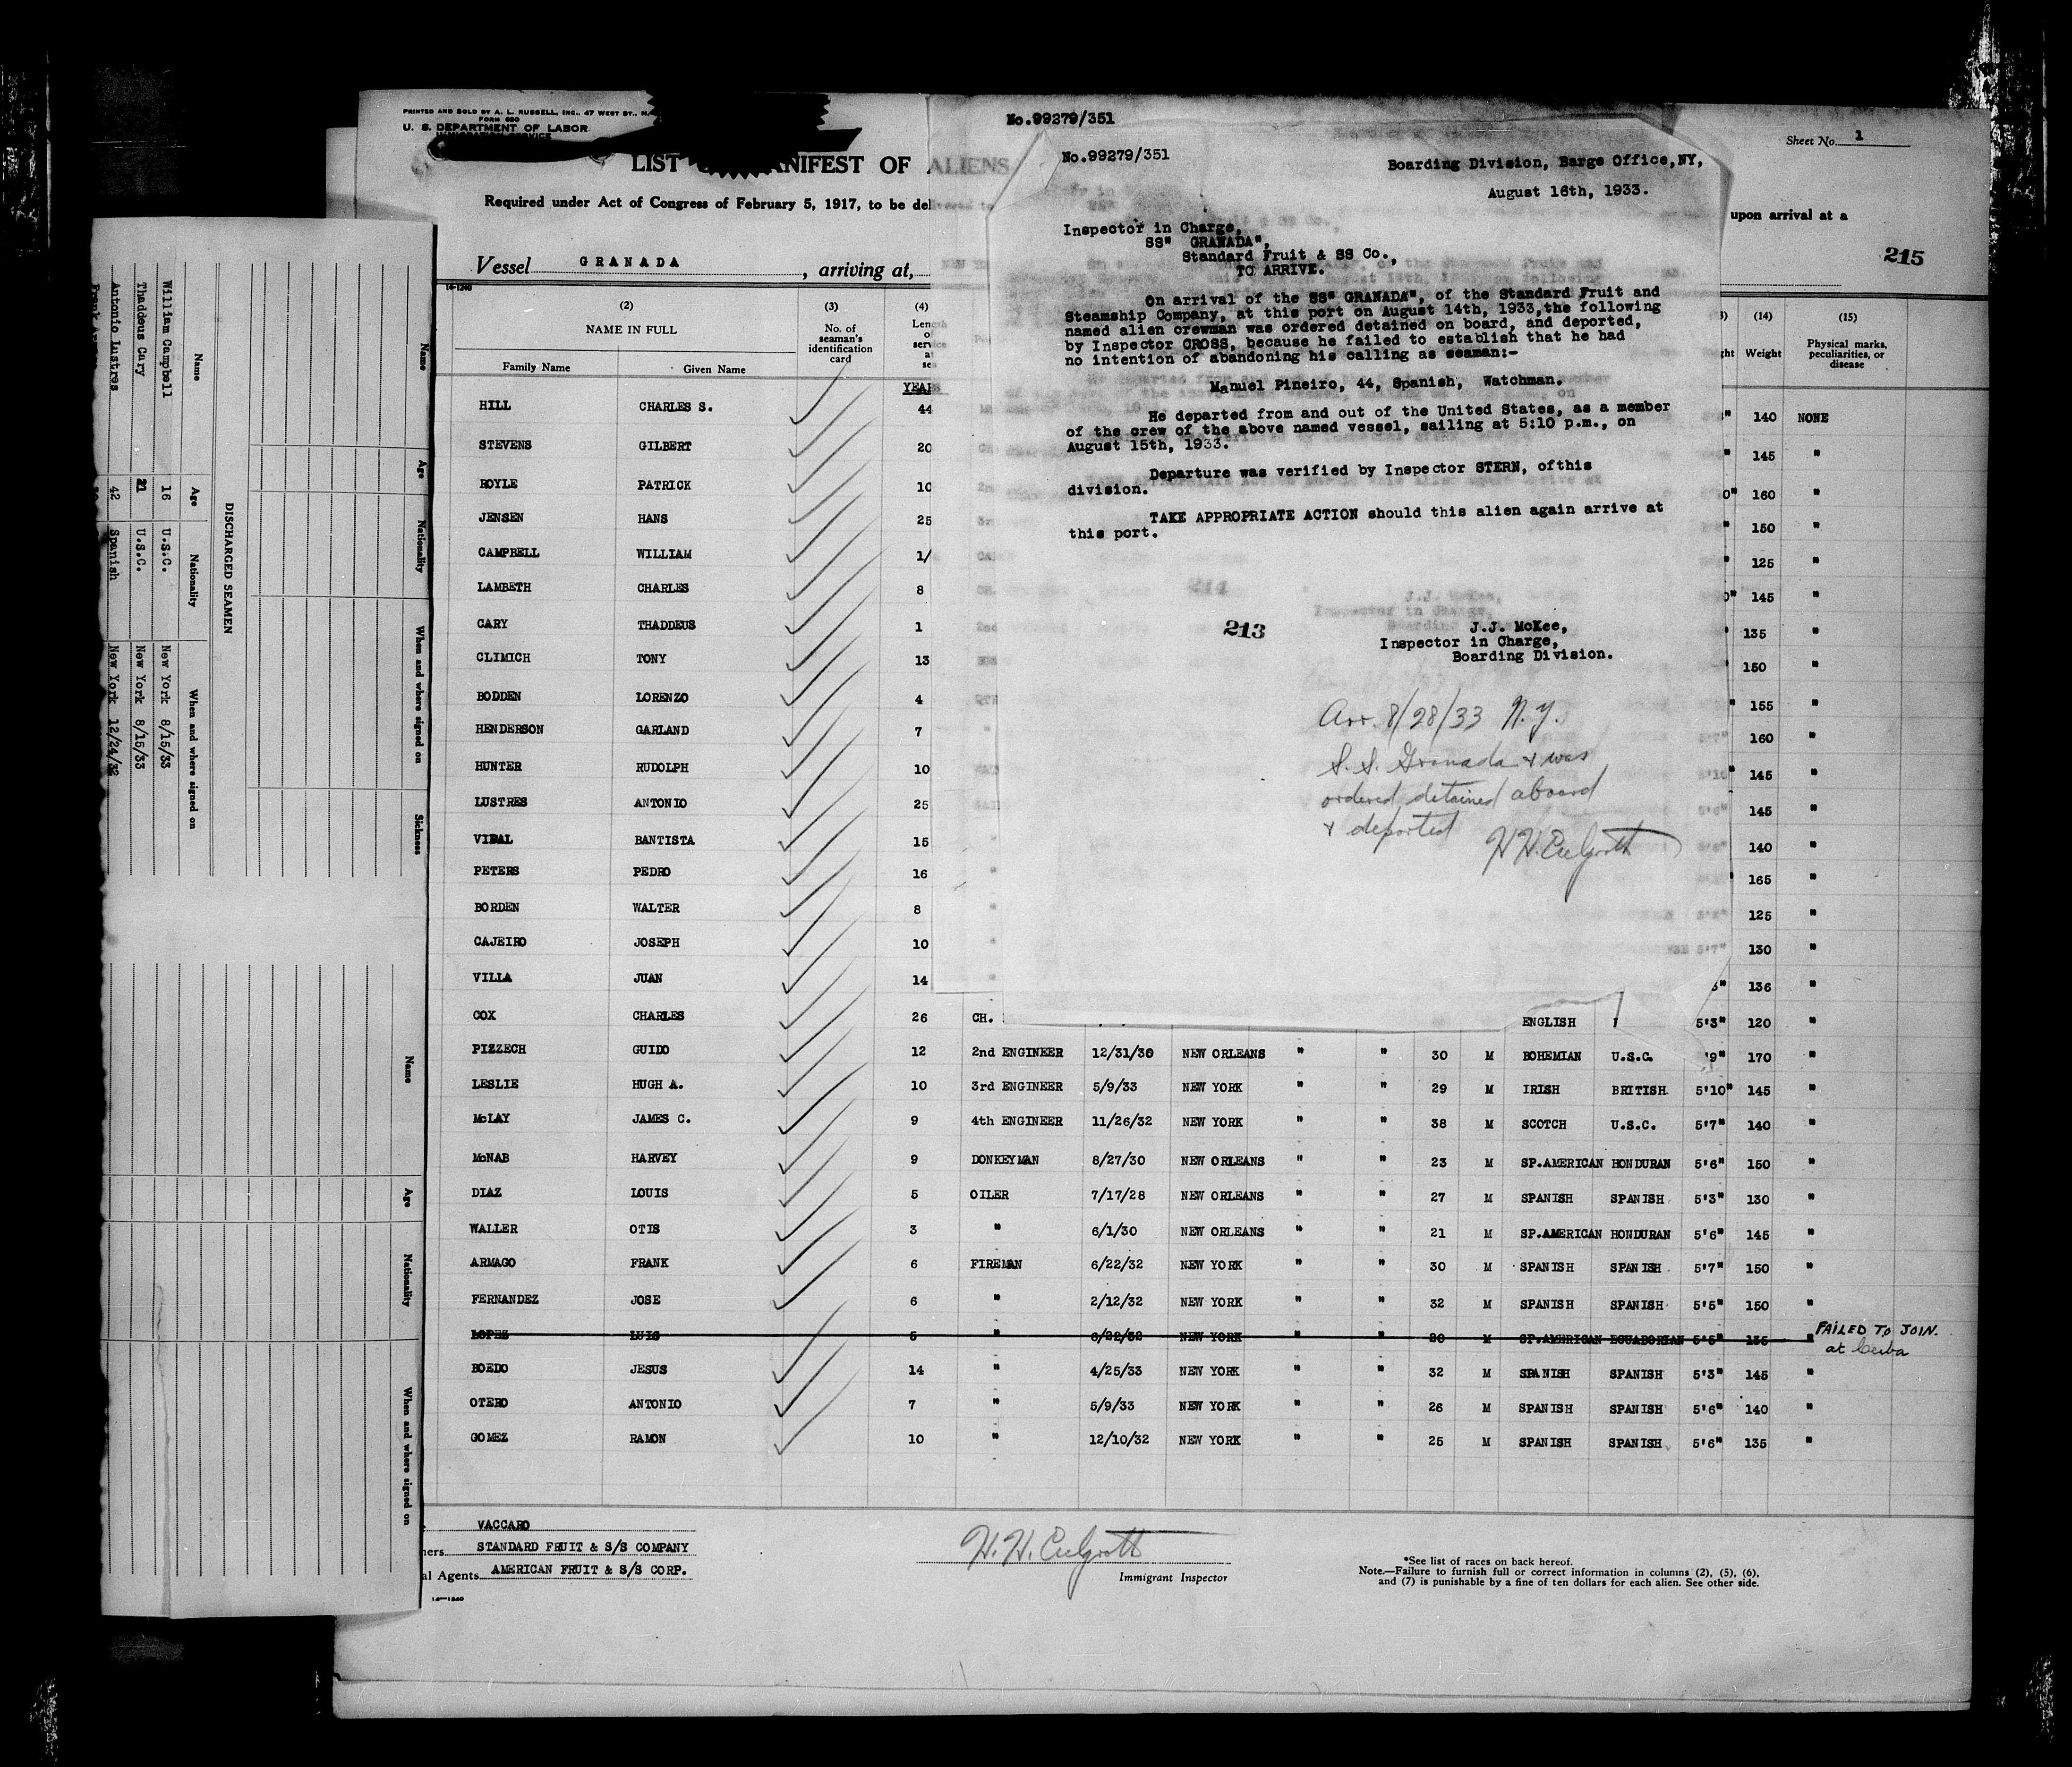 PRINTED AND SOLD BY A. L. RUSSELL, INC., 47 WEST ST., N.
FORM 680
U. S. DEPARTMENT OF LABOR
LIST ANIFEST OF ALIENS
Required under Act of Congress of February 5, 1917, to be del
Vessel GRANADA , arriving at,
14-1240
(2) (3) (4)
NAME IN FULL
No. of seaman's identification card
Family Name Given Name
YEARS
HILL CHARLES S. 44
STEVENS GILBERT 20
ROYLE PATRICK 10
JENSEN HANS 25
CAMPBELL WILLIAM 1/
LAMBETH CHARLES 8
CARY THADDEUS 1
CLIMICH TONY 13
BODDEN LORENZO 4
HENDERSON GARLAND 7
HUNTER RUDOLPH 10
LUSTRES ANTONIO 25
VIDAL BANTISTA 15
PETERS PEDRO 16
BORDEN WALTER 8
CAJEIRO JOSEPH 10
VILLA JUAN 14
COX CHARLES 26 CH. ENGLISH 5'3" 120 "
PIZZECH GUIDO 12 2nd ENGINEER 12/31/30 NEW ORLEANS " " 30 M BOHEMIAN U.S.C. '9" 170 "
LESLIE HUGH A. 10 3rd ENGINEER 5/9/33 NEW YORK " " 29 M IRISH BRITISH 5'10" 145 "
McLAY JAMES C. 9 4th ENGINEER 11/26/32 NEW YORK " " 38 M SCOTCH U.S.C. 5'7" 140 "
McNAB HARVEY 9 DONKEYMAN 8/27/30 NEW ORLEANS " " 23 M SP.AMERICAN HONDURAN 5'6" 150 "
DIAZ LOUIS 5 OILER 7/17/28 NEW ORLEANS " " 27 M SPANISH SPANISH 5'3" 130 "
WALLER OTIS 3 " 6/1/30 NEW ORLEANS " " 21 M SP.AMERICAN HONDURAN 5'6" 145 "
ARMAGO FRANK 6 FIREMAN 6/22/32 NEW YORK " " 30 M SPANISH SPANISH 5'7" 150 "
FERNANDEZ JOSE 6 " 2/12/32 NEW YORK " " 32 M SPANISH SPANISH 5'5" 150 "
LOPEZ LUIS 5 " 6/22/32 NEW YORK " " 20 M SP.AMERICAN ECUADORIAN 5'5" 135 " FAILED TO JOIN.
at Ceiba
BOEDO JESUS 14 " 4/25/33 NEW YORK " " 32 M SPANISH SPANISH 5'3" 145 "
OTERO ANTONIO 7 " 5/9/33 NEW YORK " " 26 M SPANISH SPANISH 5'6" 140 "
GOMEZ RAMON 10 " 12/10/32 NEW YORK " " 25 M SPANISH SPANISH 5'6" 135 "
VACCARO
ners STANDARD FRUIT & S/S COMPANY
al Agents AMERICAN FRUIT & S/S CORP.
14-1240
H. H. Culgroth
Immigrant Inspector
*See list of races on back hereof.
Note.—Failure to furnish full or correct information in columns (2), (5), (6),
and (7) is punishable by a fine of ten dollars for each alien. See other side.
No.99279/351
No.99279/351
Boarding Division, Barge Office,NY,
August 16th, 1933.
Inspector in Charge,
SS" GRANADA",
Standard Fruit & SS Co.,
TO ARRIVE.
On arrival of the SS" GRANADA", of the Standard Fruit and
Steamship Company, at this port on August 14th, 1933,the following
named alien crewman was ordered detained on board, and deported,
by Inspector CROSS, because he failed to establish that he had
no intention of abandoning his calling as seaman:-
Manuel Pineiro, 44, Spanish, Watchman.
He departed from and out of the United States, as a member
of the crew of the above named vessel, sailing at 5:10 p.m., on
August 15th, 1933.
Departure was verified by Inspector STERN, ofthis
division.
TAKE APPROPRIATE ACTION should this alien again arrive at
this port.
214
213
J.J. McKee,
Inspector in Charge,
Boarding Division.
Arr. 8/28/33 N.Y.
S.S. Granada & was
ordered detained aboard
& deported
H H. Culgroth
Sheet No. 1
upon arrival at a
215
(14) (15)
Weight
Physical marks, peculiarities, or disease
140 NONE
145 "
160 "
150 "
125 "
145 "
135 "
150 "
155 "
160 "
145 "
145 "
140 "
165 "
125 "
130 "
136 "
DISCHARGED SEAMEN
Name Age Nationality When and where signed on
William Campbell 16 U.S.C. New York 8/15/33
Thaddeus Cary 21 U.S.C. New York 8/15/33
Antonio Lustres 42 Spanish New York 12/24/32
Name Age Nationality When and where signed on Sickness
Name Age Nationality When and where signed on